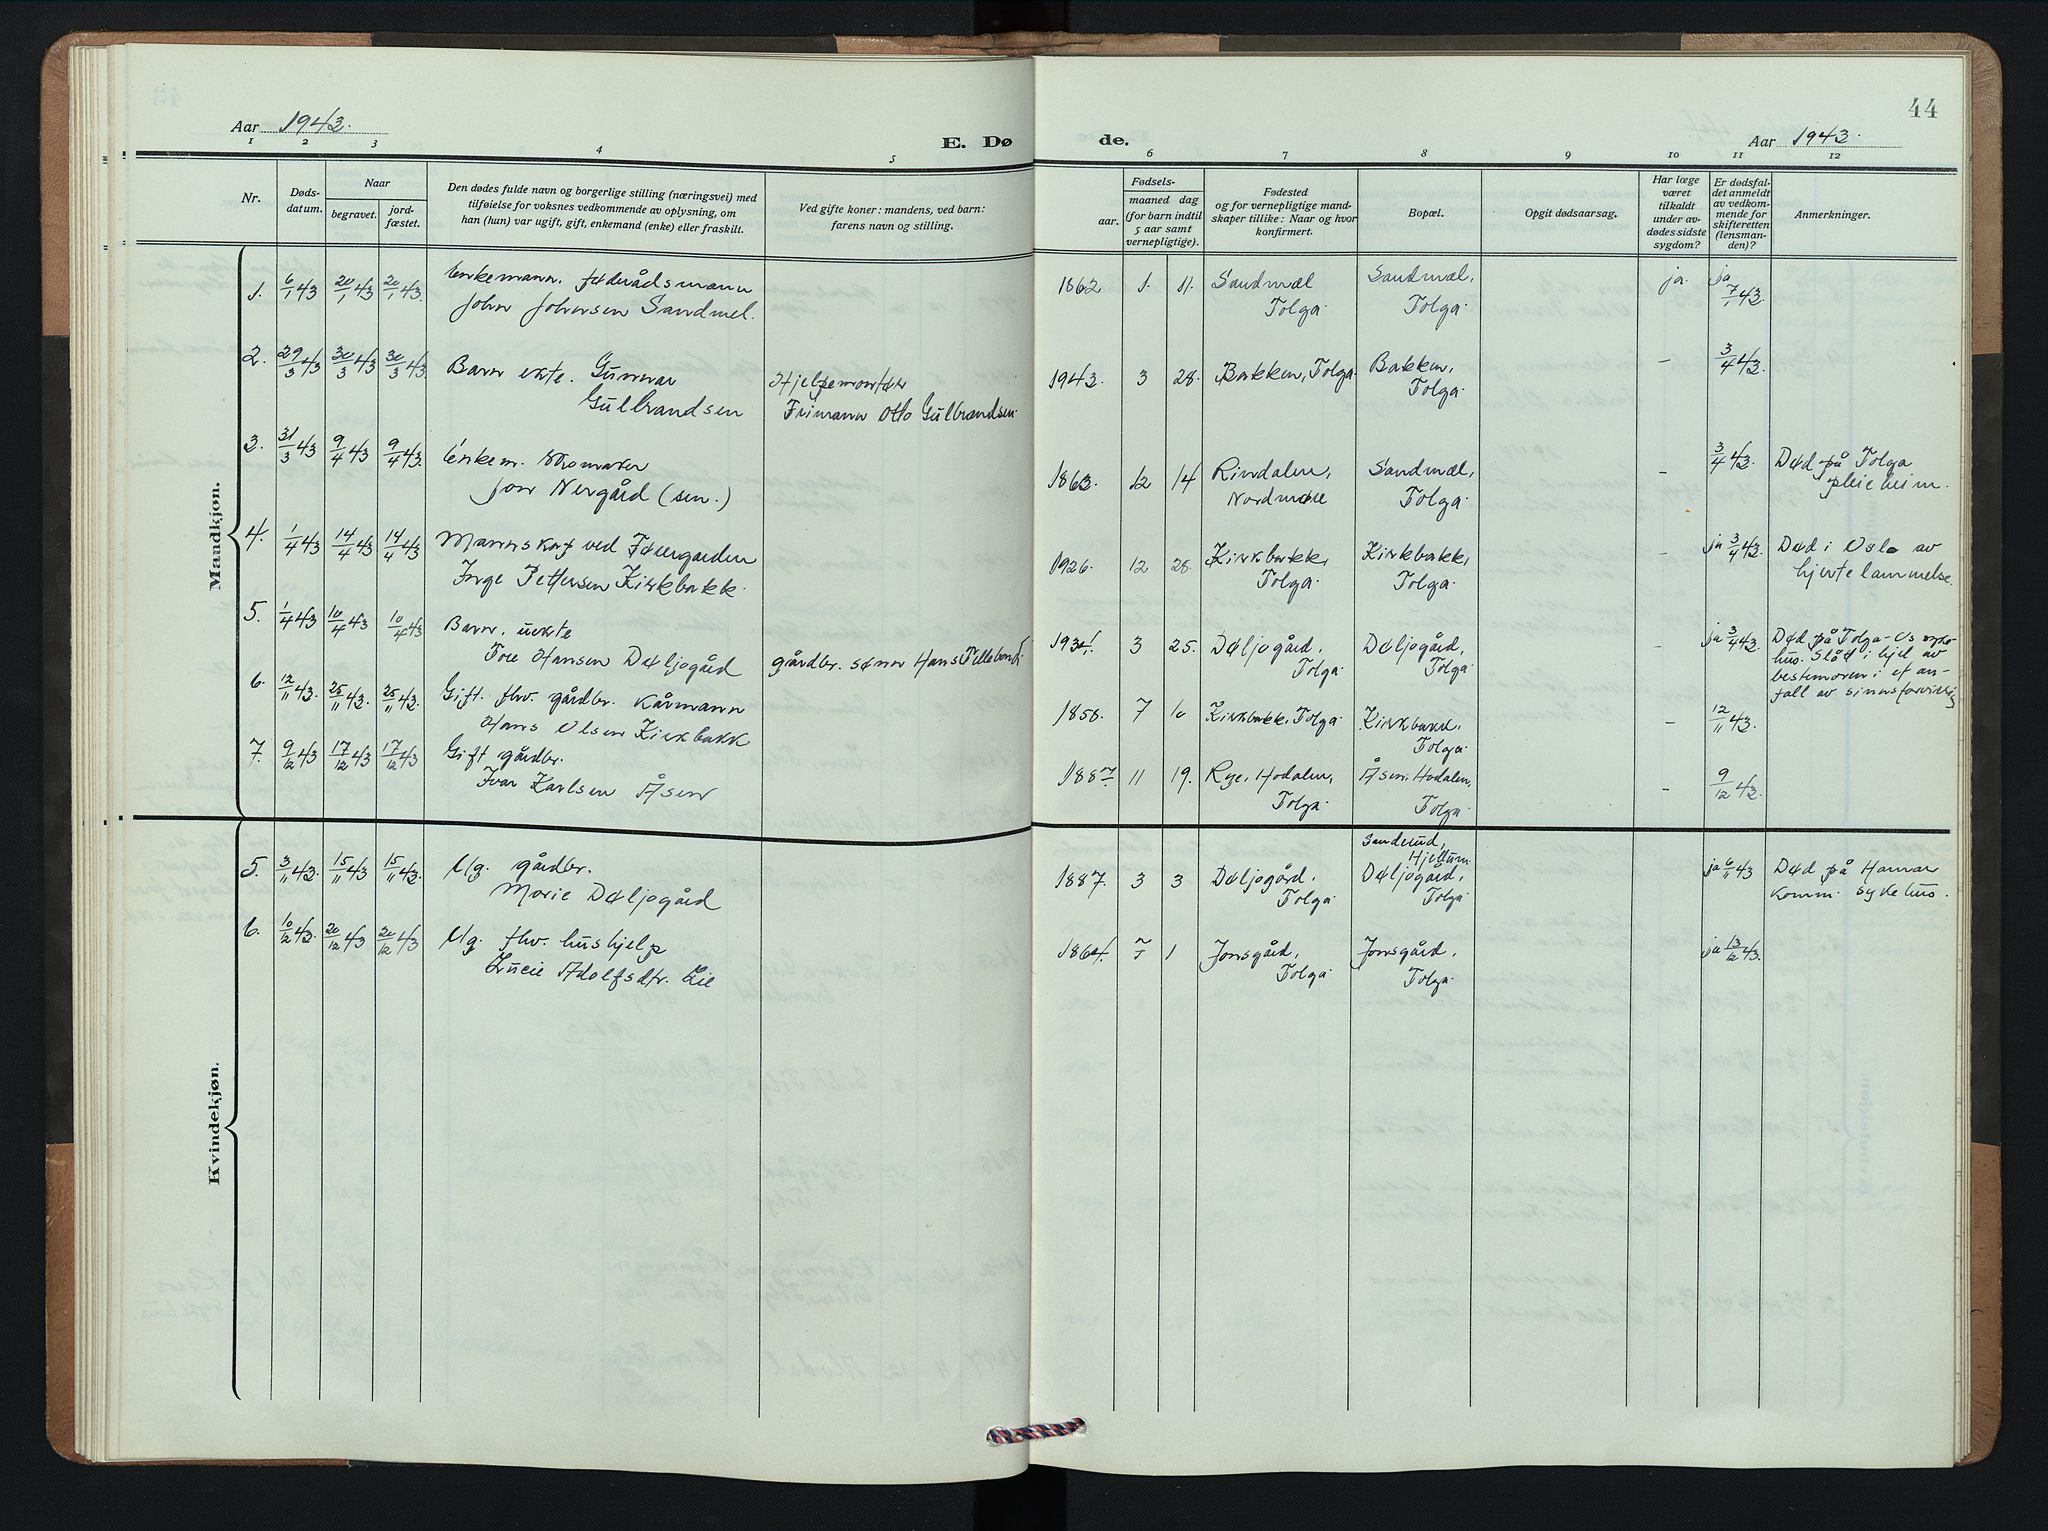 44
Aar 1943.
E. Dø
de.
Aar 1943.
1 2 3 4 5 6 7 8 9 10 11 12
Nr.
Døds-
datum.
Naar
begravet.
jord-
fæstet.
Den dødes fulde navn og borgerlige stilling (næringsvei) med
tilføielse for voksnes vedkommende av oplysning, om
han (hun) var ugift, gift, enkemand (enke) eller fraskilt.
Ved gifte koner: mandens, ved barn:
farens navn og stilling.
Fødsels-
aar.
maaned dag
(for barn indtil
5 aar samt
vernepligtige).
Fødested
og for vernepligtige mand-
skaper tillike: Naar og hvor
konfirmert.
Bopæl.
Opgit dødsaarsag.
Har læge
været
tilkaldt
under av-
dødes sidste
sygdom?
Er dødsfal-
det anmeldt
av vedkom-
mende for
skifteretten
(lensman-
den)?
Anmerkninger.
Mandkjøn.
1. 6/1 43 20/1 43 20/1 43. Enkemann. føderådsmann 1862 1. 11. Sandmæl Sandmæl, ja. ja
John Johnsen Sandmel. Tolga. Tolga. 7/1 43.
2. 29/3 43 30/3 43 30/3 43. Barn ekte. Gunnar Hjelpemontør 1943. 3 28. Bakken, Tolga. Bakken, – 3/4 43.
Gulbrandsen Frimann Otto Gulbrandsen. Tolga.
3. 31/3 43 9/4 43 9/4 43. Enkem. skomaker 1863. 12 14 Rindalen, Sandmæl, – 3/4 43. Død på Tolga
Jon Nergård (sen.) Nordmøre Tolga. pleieheim.
4. 1/4 43 14/4 43 14/4 43 Mannskap ved 1926. 12 28. Kirkbakk, Kirkbakk, – ja 3/4 43. Død i Oslo av
Inge Pettersen Kirkbakk. Tolga. Tolga. hjertelammelse.
5. 1/4 43 10/4 43 10/4 43 Barn. uekte 3 25. Døljogård, Døljogård, – ja 3/4 43. Død på Tolga-Os syke-
Tore Hansen Døljogård gårdbr. sønn Hans Tolga. Tolga. hus. Slått i hjel av
bestemoren i et an-
fall av sinnsforvirring
6. 12/11 43. 25/11 43. 25/11 43. Gift. fhv. gårdbr. kårmann 1858. 7 10 Kirkbakk, Tolga. Kirkbakk, – 12/11 43.
Hans Olsen Kirkbakk Tolga.
7. 9/12 43 17/12 43 17/12 43 Gift gårdbr. 1887 11 19. Rye, Hodalen, Åsen, Hodalen, – 9/12 43.
Ivar Karlsen Åsen Tolga. Tolga.
Kvindekjøn.
Sanderud,
Hjellum.
5. 3/11 43. 15/11 43 15/11 43. Ug. gårdbr. 1887. 3 3 Døljogård, Døljogård, ja 6/11 43 Død på Hamar
Marie Døljogård Tolga. Tolga komm. sykehus.
6. 10/12 43. 20/12 43 20/12 43 Ug. fhv. hushjelp 1864. 7 1 Jonsgård, Jonsgård, ja 13/12 43.
Lucie Adolfsdtr. Lie Tolga. Tolga.